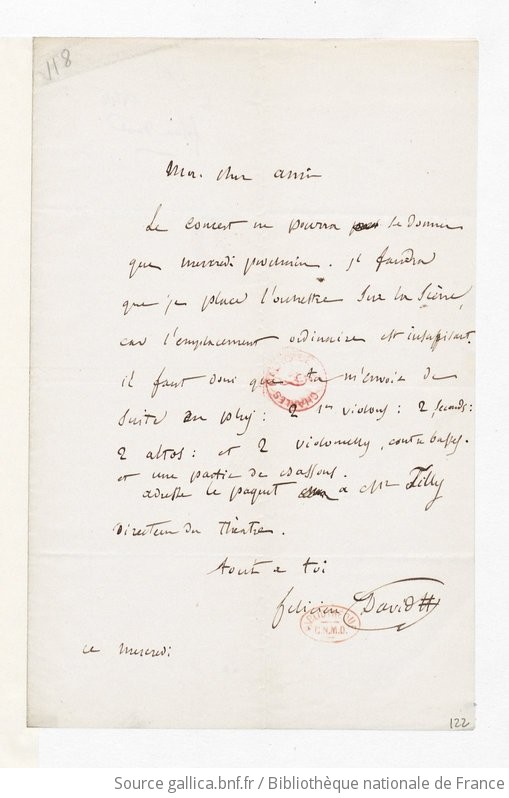 118
Mon cher ami
Le concert ne pourra se donner
que mercredi prochain. il faudra
que je place l'orchestre sur la scène,
car l'emplacement ordinaire est insuffisant.
il faut donc que tu m'envoie de
suite en plus : 2 1ers violons : 2 seconds :
2 altos : et 2 violoncelles, contrebasses.
et une partie de bassons.
adresse le paquet à Mr Tilly
Directeur du théâtre.
tout à toi
felicien David
ce mercredi
122
Source gallica.bnf.fr / Bibliothèque nationale de France